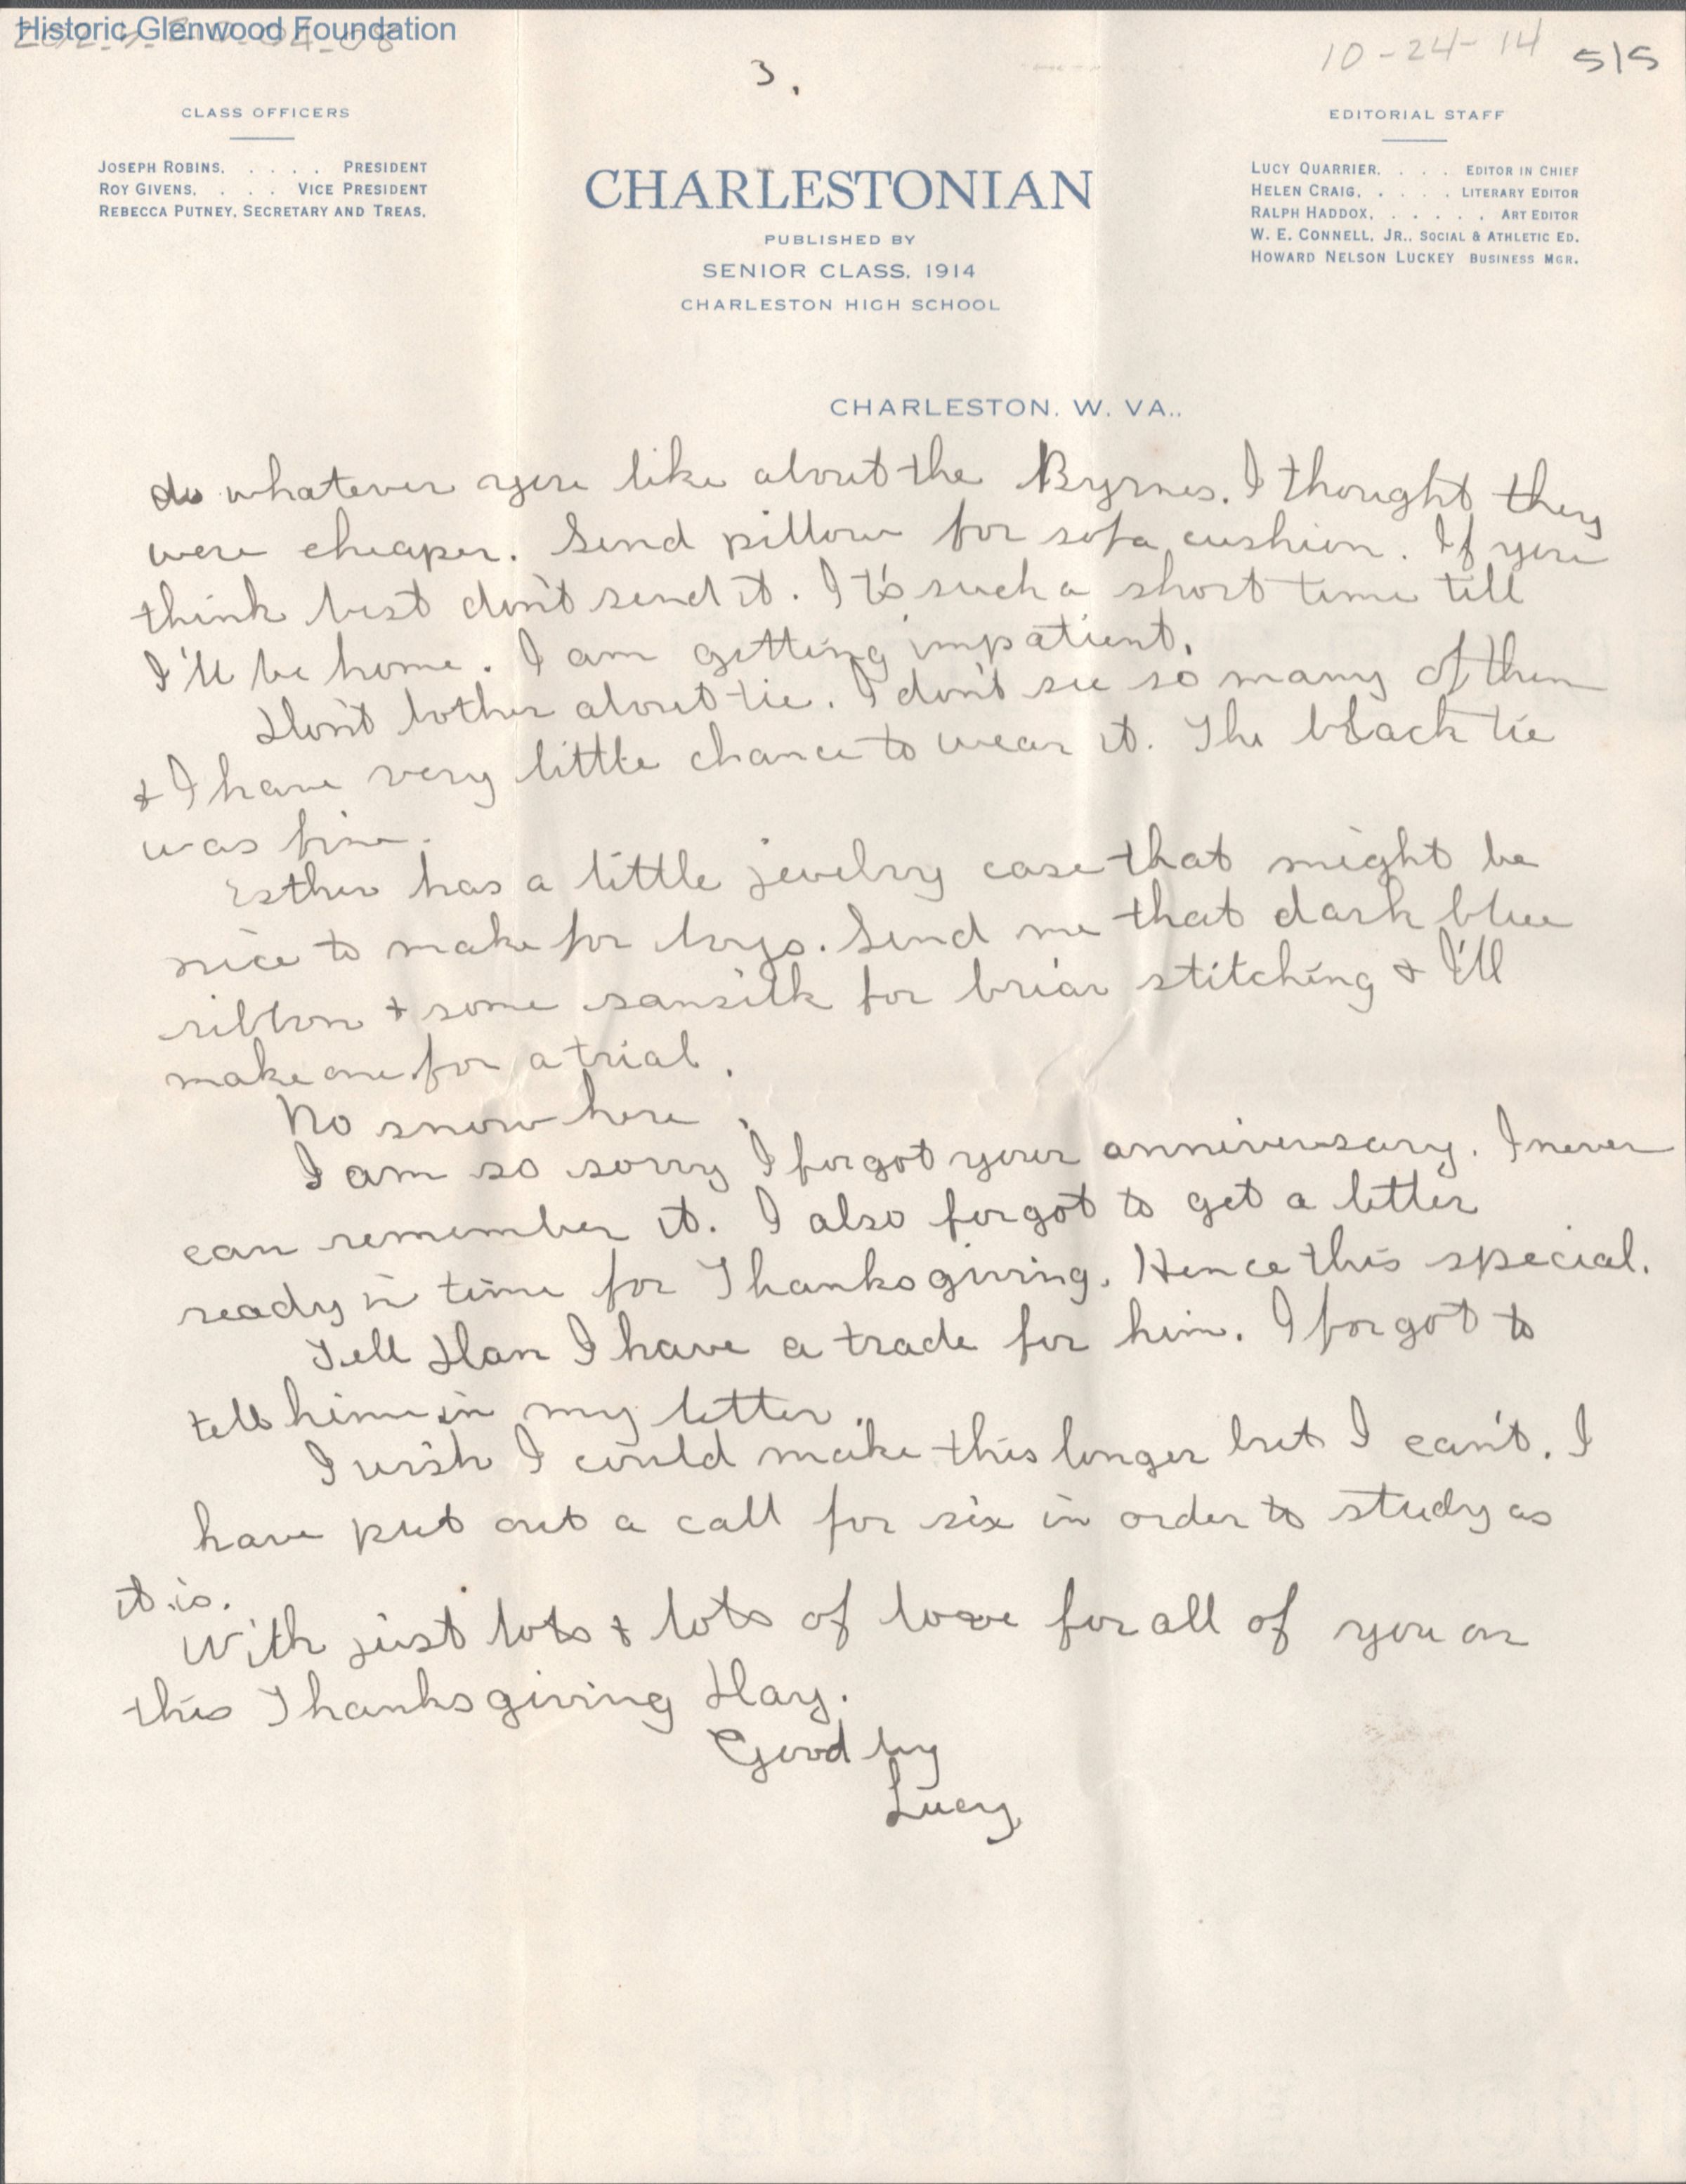 Historic Glenwood Foundation
10-24-14 5/5
3.
CLASS OFFICERS
JOSEPH ROBINS. . . . . PRESIDENT
ROY GIVENS. . . . VICE PRESIDENT
REBECCA PUTNEY. SECRETARY AND TREAS.
CHARLESTONIAN
PUBLISHED BY
SENIOR CLASS, 1914
CHARLESTON HIGH SCHOOL
EDITORIAL STAFF
LUCY QUARRIER. . . . EDITOR IN CHIEF
HELEN CRAIG. . . . . LITERARY EDITOR
RALPH HADDOX. . . . . . ART EDITOR
W. E. CONNELL, JR.. SOCIAL & ATHLETIC ED.
HOWARD NELSON LUCKEY BUSINESS MGR.
CHARLESTON, W. VA.,
do whatever you like about the Byrnes. I thought they
were cheaper. Send pillow for sofa cushion. If you
think best don't send it. It's such a short time till
I'll be home. I am getting impatient.
Don't bother about tie. I don't see so many of them
& I have very little chance to wear it. The black tie
was fine.
Esther has a little jewelry case that might be
nice to make for boys. Send me that dark blue
ribbon & some sansilk for briar stitching & I'll
make one for a trial.
No snow here.
I am so sorry I forgot your anniversary. I never
can remember it. I also forgot to get a letter
ready in time for Thanksgiving. Hence this special.
Tell Dan I have a trade for him. I forgot to
tell him in my letter.
I wish I could make this longer but I can't. I
have put out a call for six in order to study as
it is.
With just lots & lots of love for all of you on
this Thanksgiving Day.
Good by
Lucy